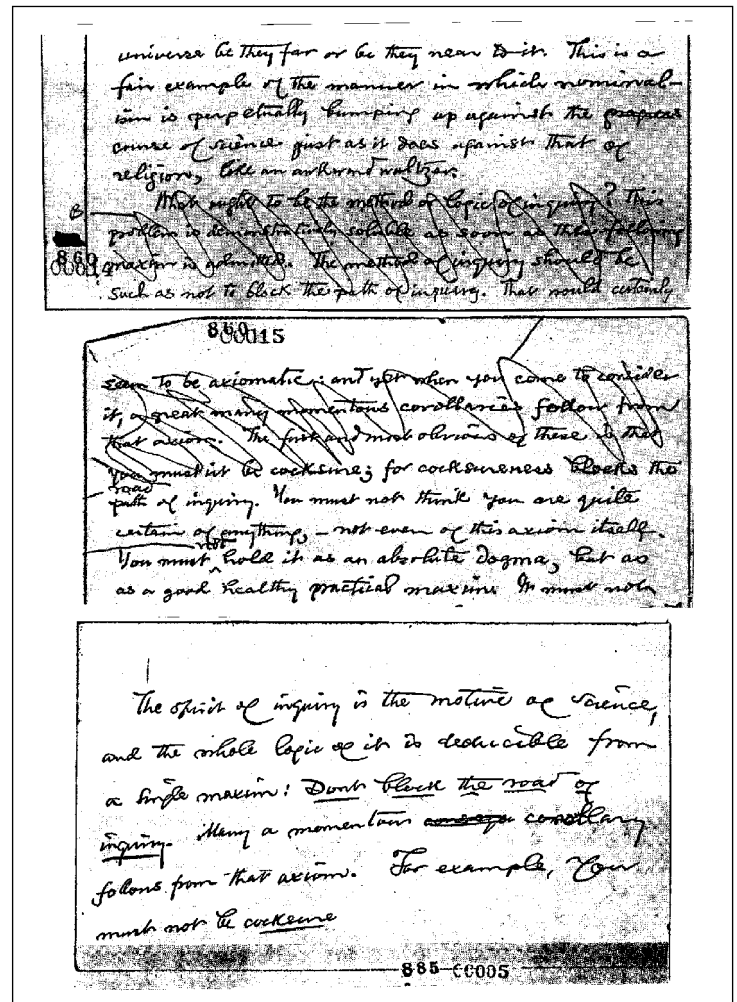 universe be they far or be they near to it. This is a
fair example of the manner in which nominal-
ism is perpetually bumping up against the progress
course of science just as it does against that of
religion, like an awkward waltzer.
B What ought to be the method or logic of inquiry? This
problem is demonstratively soluble as soon as the following
maxim is admitted. The method of inquiry should be
860
00014
such as not to block the path of inquiry. That would certainly
860
00015
seem to be axiomatic; and yet when you come to consider
it, a great many momentous corollaries follow from
that axiom. The first and most obvious of these is that
you must not be cocksure; for cocksureness blocks the
road
path of inquiry. You must not think you are quite
certain of anything, – not even of this axiom itself.
not
You must hold it as an absolute dogma, but as
as a good healthy practical maxim. It must not
The spirit of inquiry is the motive of science,
and the whole logic of it is deducible from
a single maxim: Dont block the road of
inquiry. Many a momentous corollary
follows from that axiom. For example, You
must not be cocksure
885 00005